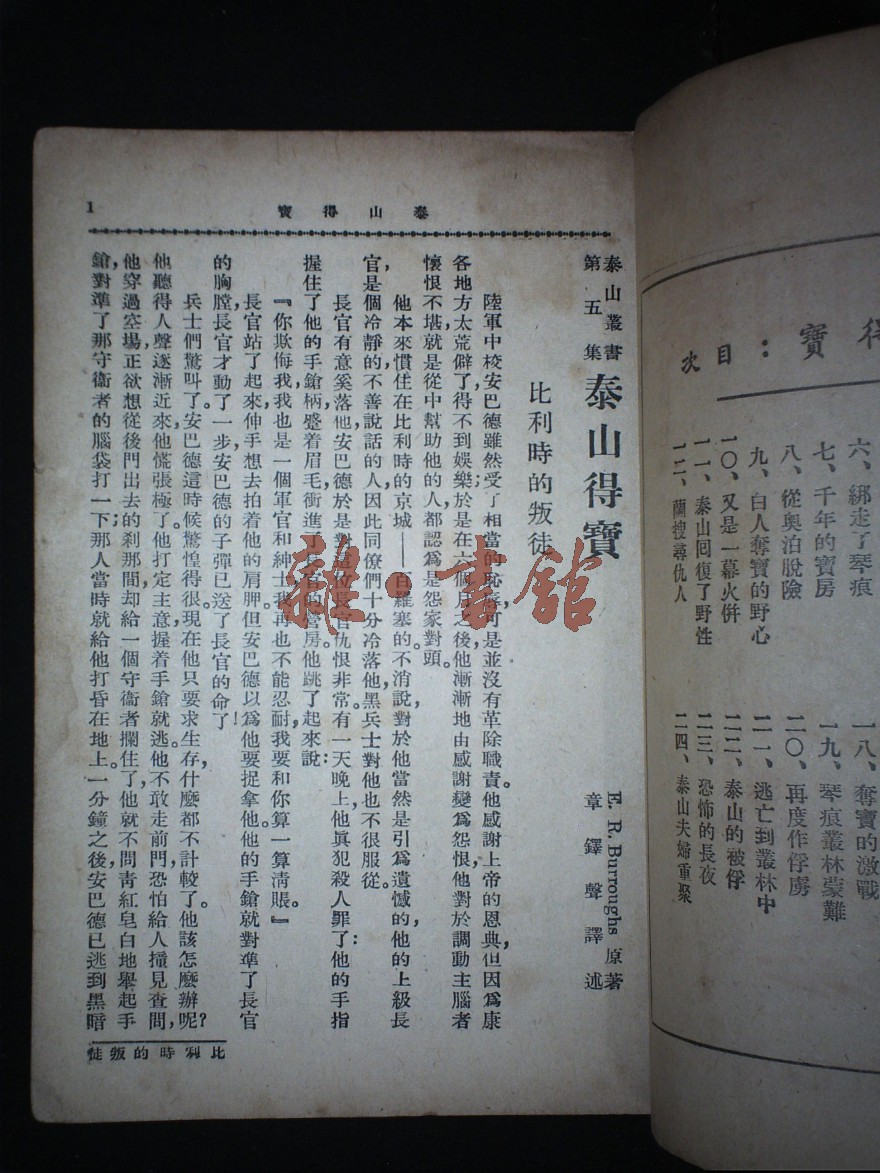 得寶：目次
六、綁走了琴痕
七、千年的寶房
八、從奧泊脫險
九、白人奪寶的野心
一〇、又是一幕火併
一一、泰山回復了野性
一二、蘭搜尋仇人
一八、奪寶的激戰
一九、琴痕叢林蒙難
二〇、再度作俘虜
二一、逃亡到叢林中
二二、泰山的被俘
二三、恐怖的長夜
二四、泰山夫婦重聚
泰山得寶
1
泰山叢書
第五集
泰山得寶
E. R. Burroughs 原著
章鐸聲譯述
比利時的叛徒
陸軍中校安巴德雖然受了相當的恥辱，可是並沒有革除職責。他感謝上帝的恩典，但因爲康
各地方太荒僻了，得不到娛樂，於是在六個月之後，他漸漸地由感謝變爲怨恨；他對於調動主腦者
懷恨不堪，就是從中幫助他的人，都認爲是怨家對頭。
他本來慣住在比利時的京城——百羅塞的，不消說，對於他當然是引爲遺憾的，他的上級長
官，是個冷靜的不善說話的人，因此同僚們十分冷落他，黑兵士對他也不很服從。
長官有意奚落他，安巴德於是對這位長官仇恨非常。有一天晚上，他眞犯殺人罪了：他的手指
握住了他的手鎗柄，蹙着眉毛，衝進了長官的營房。他跳了起來說：
『你欺侮我，我也是一個軍官和紳士，我再也不能忍耐，我要和你算一算清賬。』
長官站了起來，伸手想去拍着他的肩胛。但安巴德以爲他要捉拿他。他的手鎗就對準了長官
的胸膛，長官才動了一步，安巴德的子彈已送了長官的命了！
兵士們驚叫了。安巴德這時候驚惶得很。現在他只要求生存，什麼都不計較了。他該怎麼辦呢？
他聽得人聲逐漸近來，他慌張極了。他打定主意，握着手鎗就逃。他不敢走前門，恐怕給人撞見查問，
他穿過空場，正欲想從後門出去的刹那間，却給一個守衞者攔住了，他就不問青紅皂白地舉起手
鎗，對準了那守衞者的腦袋打一下，那人當時就給他打昏在地上。一分鐘之後，安巴德已逃到黑暗
比利時的叛徒
雜·書館